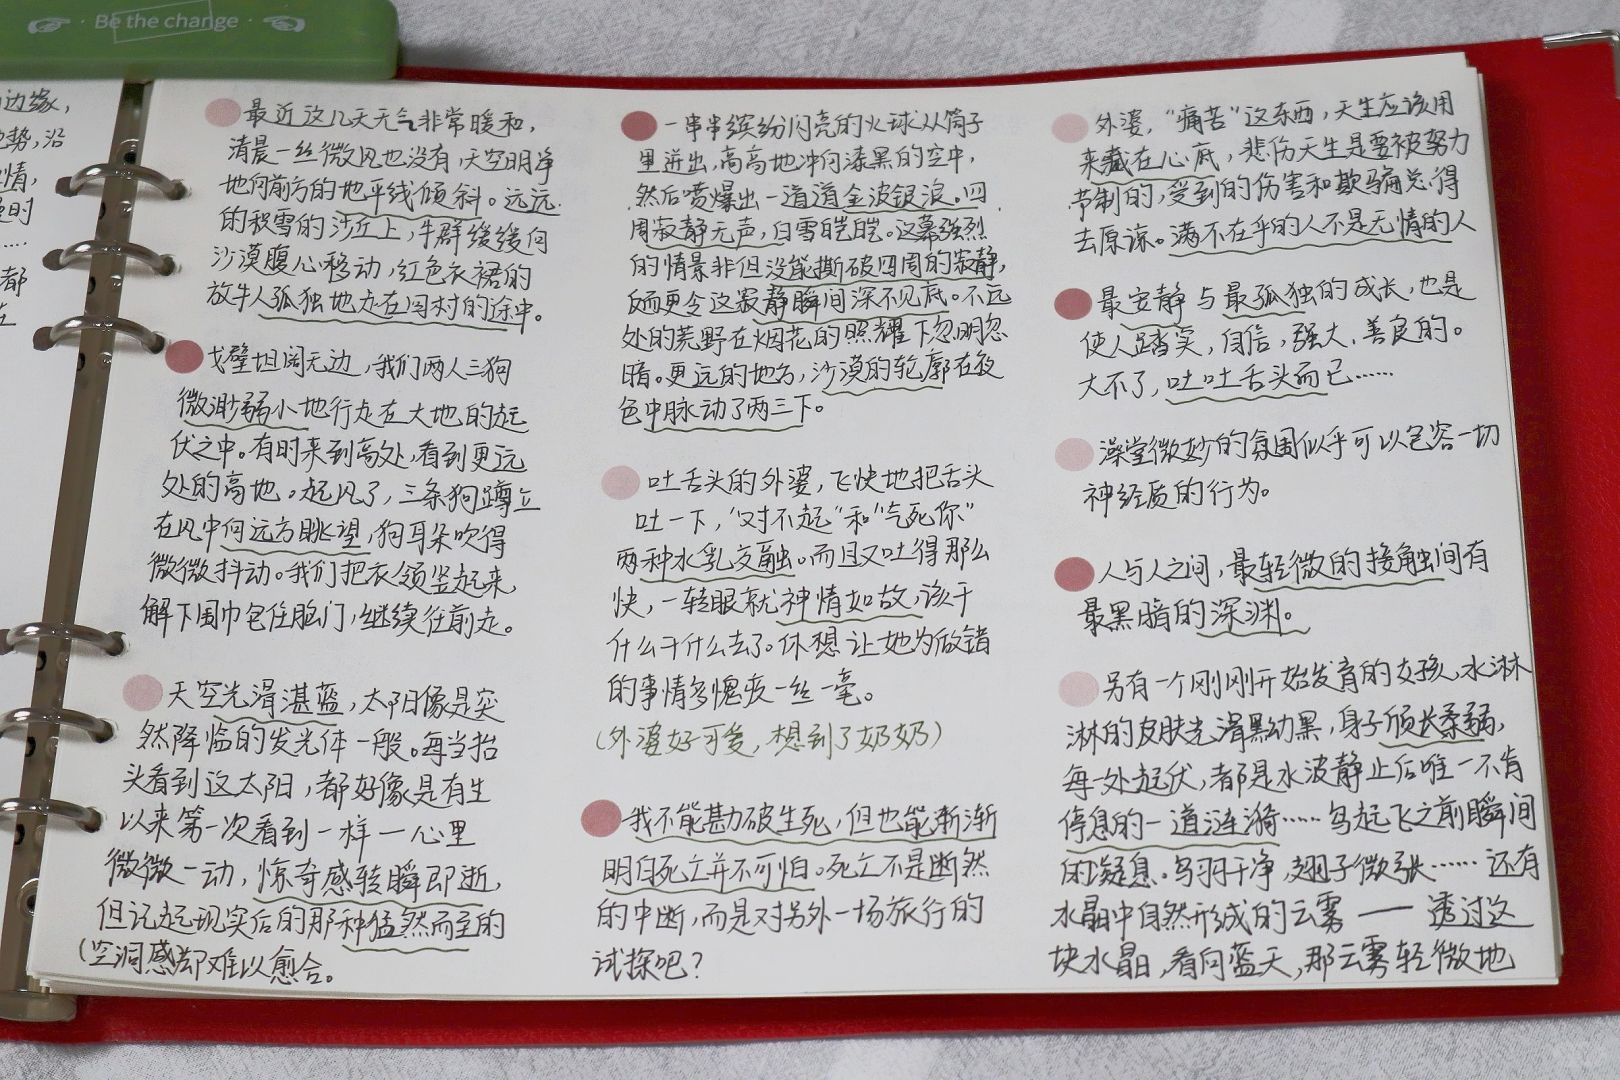 Be the change
边缘,
势,沿
情,
时
……
都
最近这几天天气非常暖和,
清晨一丝微风也没有,天空明净
地向前方的地平线倾斜。远远
的积雪的沙丘上,牛群缓缓向
沙漠腹心移动,红色衣裙的
放牛人孤独地走在回村的途中。
戈壁坦阔无边,我们两人三狗
微渺弱小地行走在大地的起
伏之中。有时来到高处,看到更远
处的高地。起风了,三条狗蹲立
在风中向远方眺望,狗耳朵吹得
微微抖动。我们把衣领竖起来,
解下围巾包住脸门,继续往前走。
天空光滑湛蓝,太阳像是突
然降临的发光体一般。每当抬
头看到这太阳,都好像是有生
以来第一次看到一样一心里
微微一动,惊奇感转瞬即逝,
但记起现实后的那种猛然而至的
空洞感却难以愈合。
一串串缤纷闪亮的火球从筒子
里迸出,高高地冲向漆黑的空中,
然后喷爆出一道道金波银浪。四
周寂静无声,白雪皑皑。这幕强烈
的情景非但没能撕破四周的寂静,
反而更令这寂静瞬间深不见底。不远
处的荒野在烟花的照耀下忽明忽
暗。更远的地方,沙漠的轮廓在夜
色中脉动了两三下。
吐舌头的外婆,飞快地把舌头
吐一下,"对不起"和"气死你"
两种水乳交融。而且又吐得那么
快,一转眼就神情如故,该干
什么干什么去了。休想让她为做错
的事情多愧疚一丝一毫。
(外婆好可爱,想到了奶奶)
我不能勘破生死,但也能渐渐
明白死亡并不可怕。死亡不是断然
的中断,而是对另外一场旅行的
试探吧?
外婆,"痛苦"这东西,天生应该用
来藏在心底,悲伤天生是要被努力
节制的,受到的伤害和欺骗总得
去原谅。满不在乎的人不是无情的人
最安静与最孤独的成长,也是
使人踏实,自信,强大,善良的。
大不了,吐吐舌头而已……
澡堂微妙的氛围似乎可以包容一切
神经质的行为。
人与人之间,最轻微的接触间有
最黑暗的深渊。
另有一个刚刚开始发育的女孩,水淋
淋的皮肤光滑黑幼黑,身子颀长柔弱,
每一处起伏,都是水波静止后唯一不肯
停息的一道涟漪……鸟起飞之前瞬间
的凝息。鸟羽干净,翅子微张……还有
水晶中自然形成的云雾——透过这
块水晶,看向蓝天,那云雾轻微地